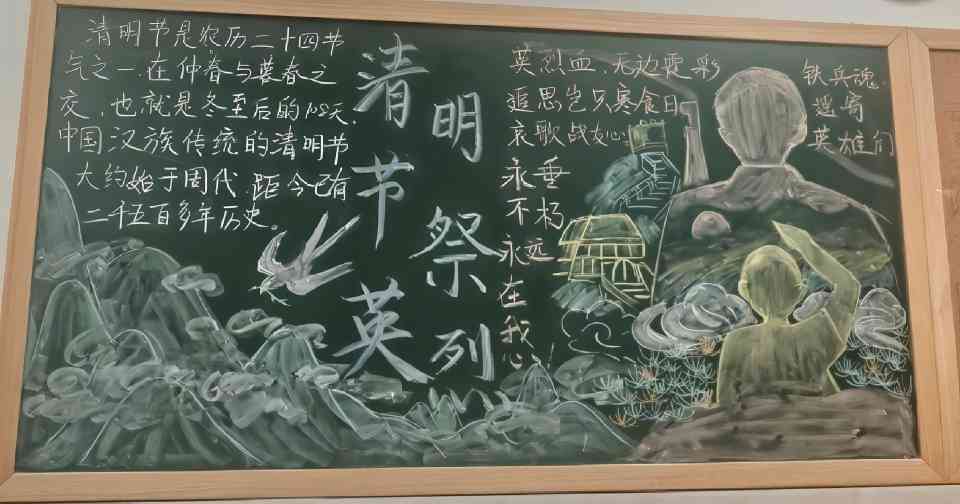 清明节是农历二十四节
气之一.在仲春与暮春之
交,也就是冬至后的108天.
中国汉族传统的清明节
大约始于周代.距今已有
二千五百多年历史。
清明
节祭
英列
英烈血,无边霞彩
追思岂只寒食日
哀歌战
永垂
不朽
永远
在
我
心
铁兵魂.
英雄们